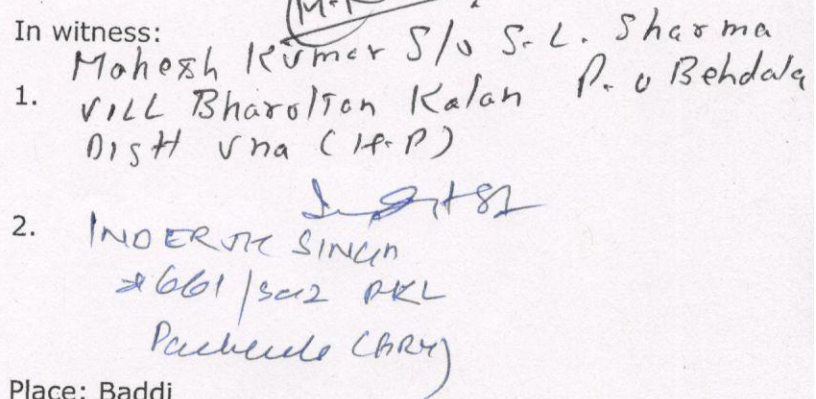 In witness:
Mahesh Kumar S/o S.L. Sharma
1. VILL Bharoltan Kalan P.o Behdala
Distt Una (H.P)
2. INDERJIT SINGH
#661/Sec2 PKL
Panchkula (HRY)
Place: Baddi